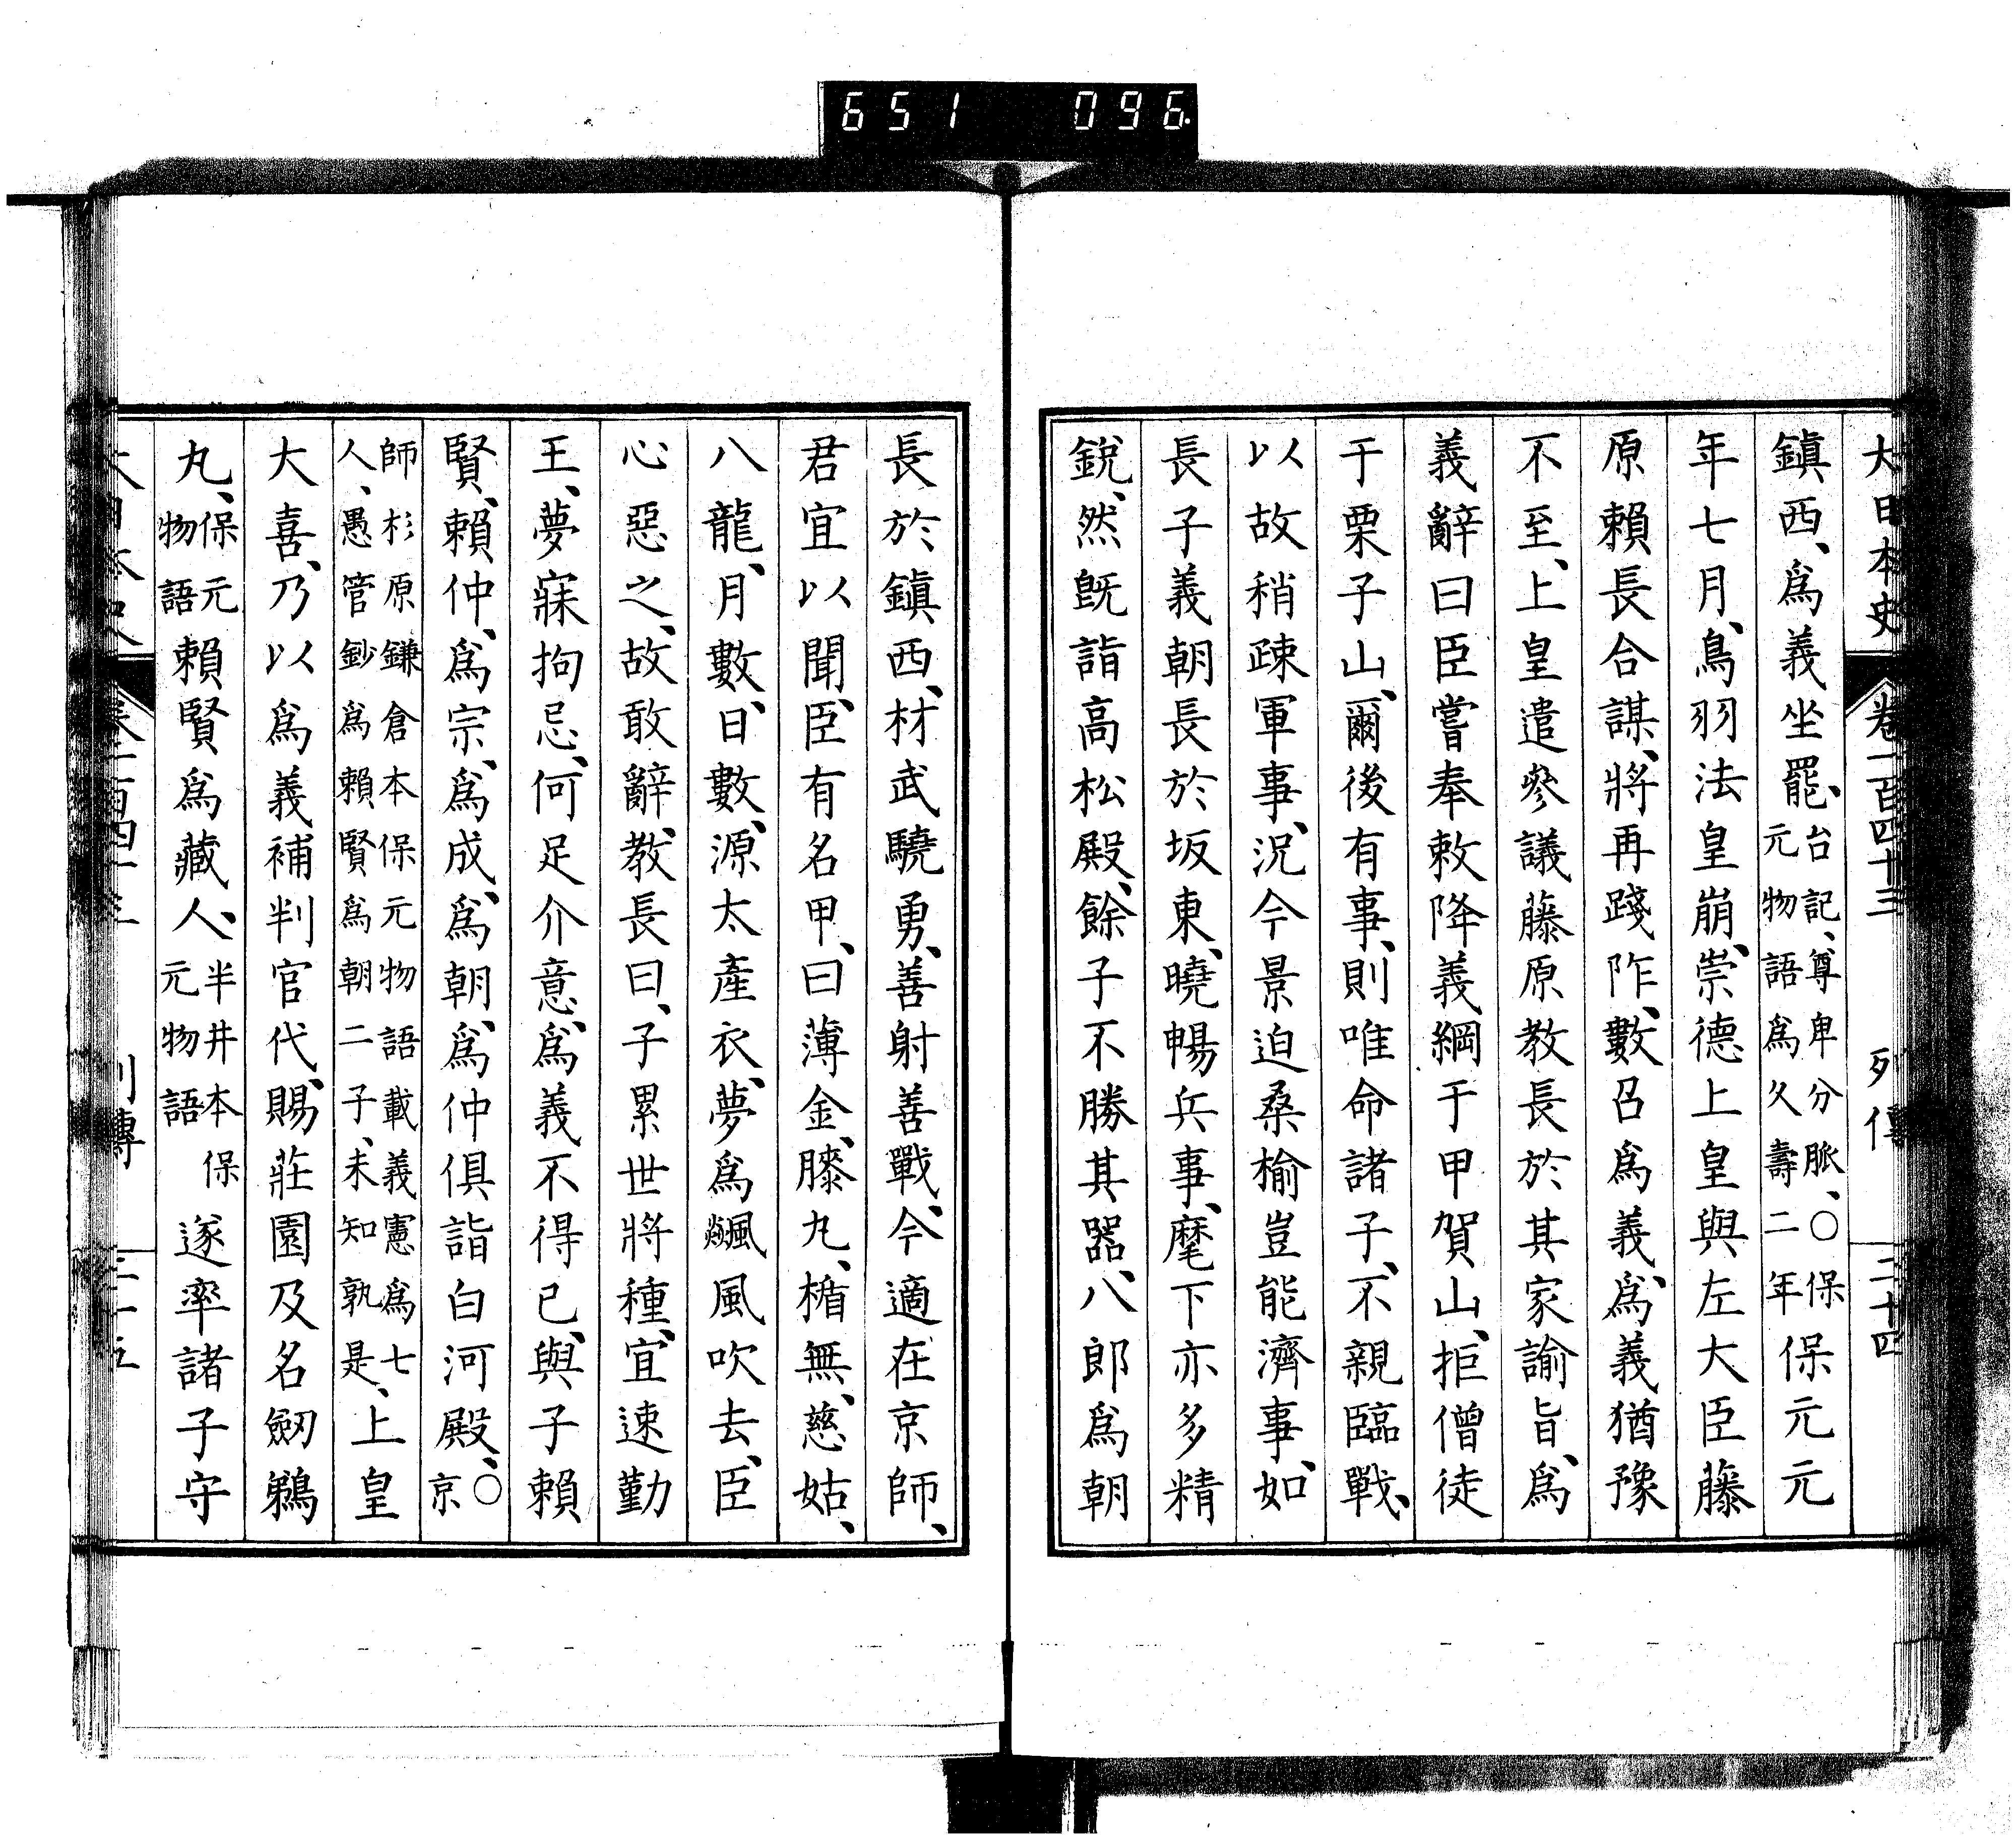 651 096
大日本史 卷一百四十三 列傳 二十四
鎭西、爲義坐罷、台記、尊卑分脈、〇保元物語爲久壽二年保元元
年七月、鳥羽法皇崩、崇德上皇與左大臣藤
原賴長合謀、將再踐阼、數召爲義、爲義猶豫
不至、上皇遣參議藤原教長於其家諭旨、爲
義辭曰臣嘗奉敕降義綱于甲賀山、拒僧徒
于栗子山、爾後有事、則唯命諸子、不親臨戰、
以故稍疎軍事、況今景迫桑榆豈能濟事、如
長子義朝長於坂東、曉暢兵事、麾下亦多精
銳、然旣詣高松殿、餘子不勝其器、八郎爲朝
長於鎭西、材武驍勇、善射善戰、今適在京師、
君宜以聞、臣有名甲、曰薄金、膝丸、楯無、慈姑、
八龍、月數、日數、源太產衣、夢爲飆風吹去、臣
心惡之、故敢辭、教長曰、子累世將種、宜速勤
王、夢寐拘忌、何足介意、爲義不得已、與子賴
賢、賴仲、爲宗、爲成、爲朝、爲仲俱詣白河殿、〇京
師杉原鎌倉本保元物語載義憲爲七人、愚管鈔爲賴賢爲朝二子、未知孰是、上皇
大喜、乃以爲義補判官代、賜莊園及名劒鵜
丸、保元物語賴賢爲藏人、半井本保元物語遂率諸子守